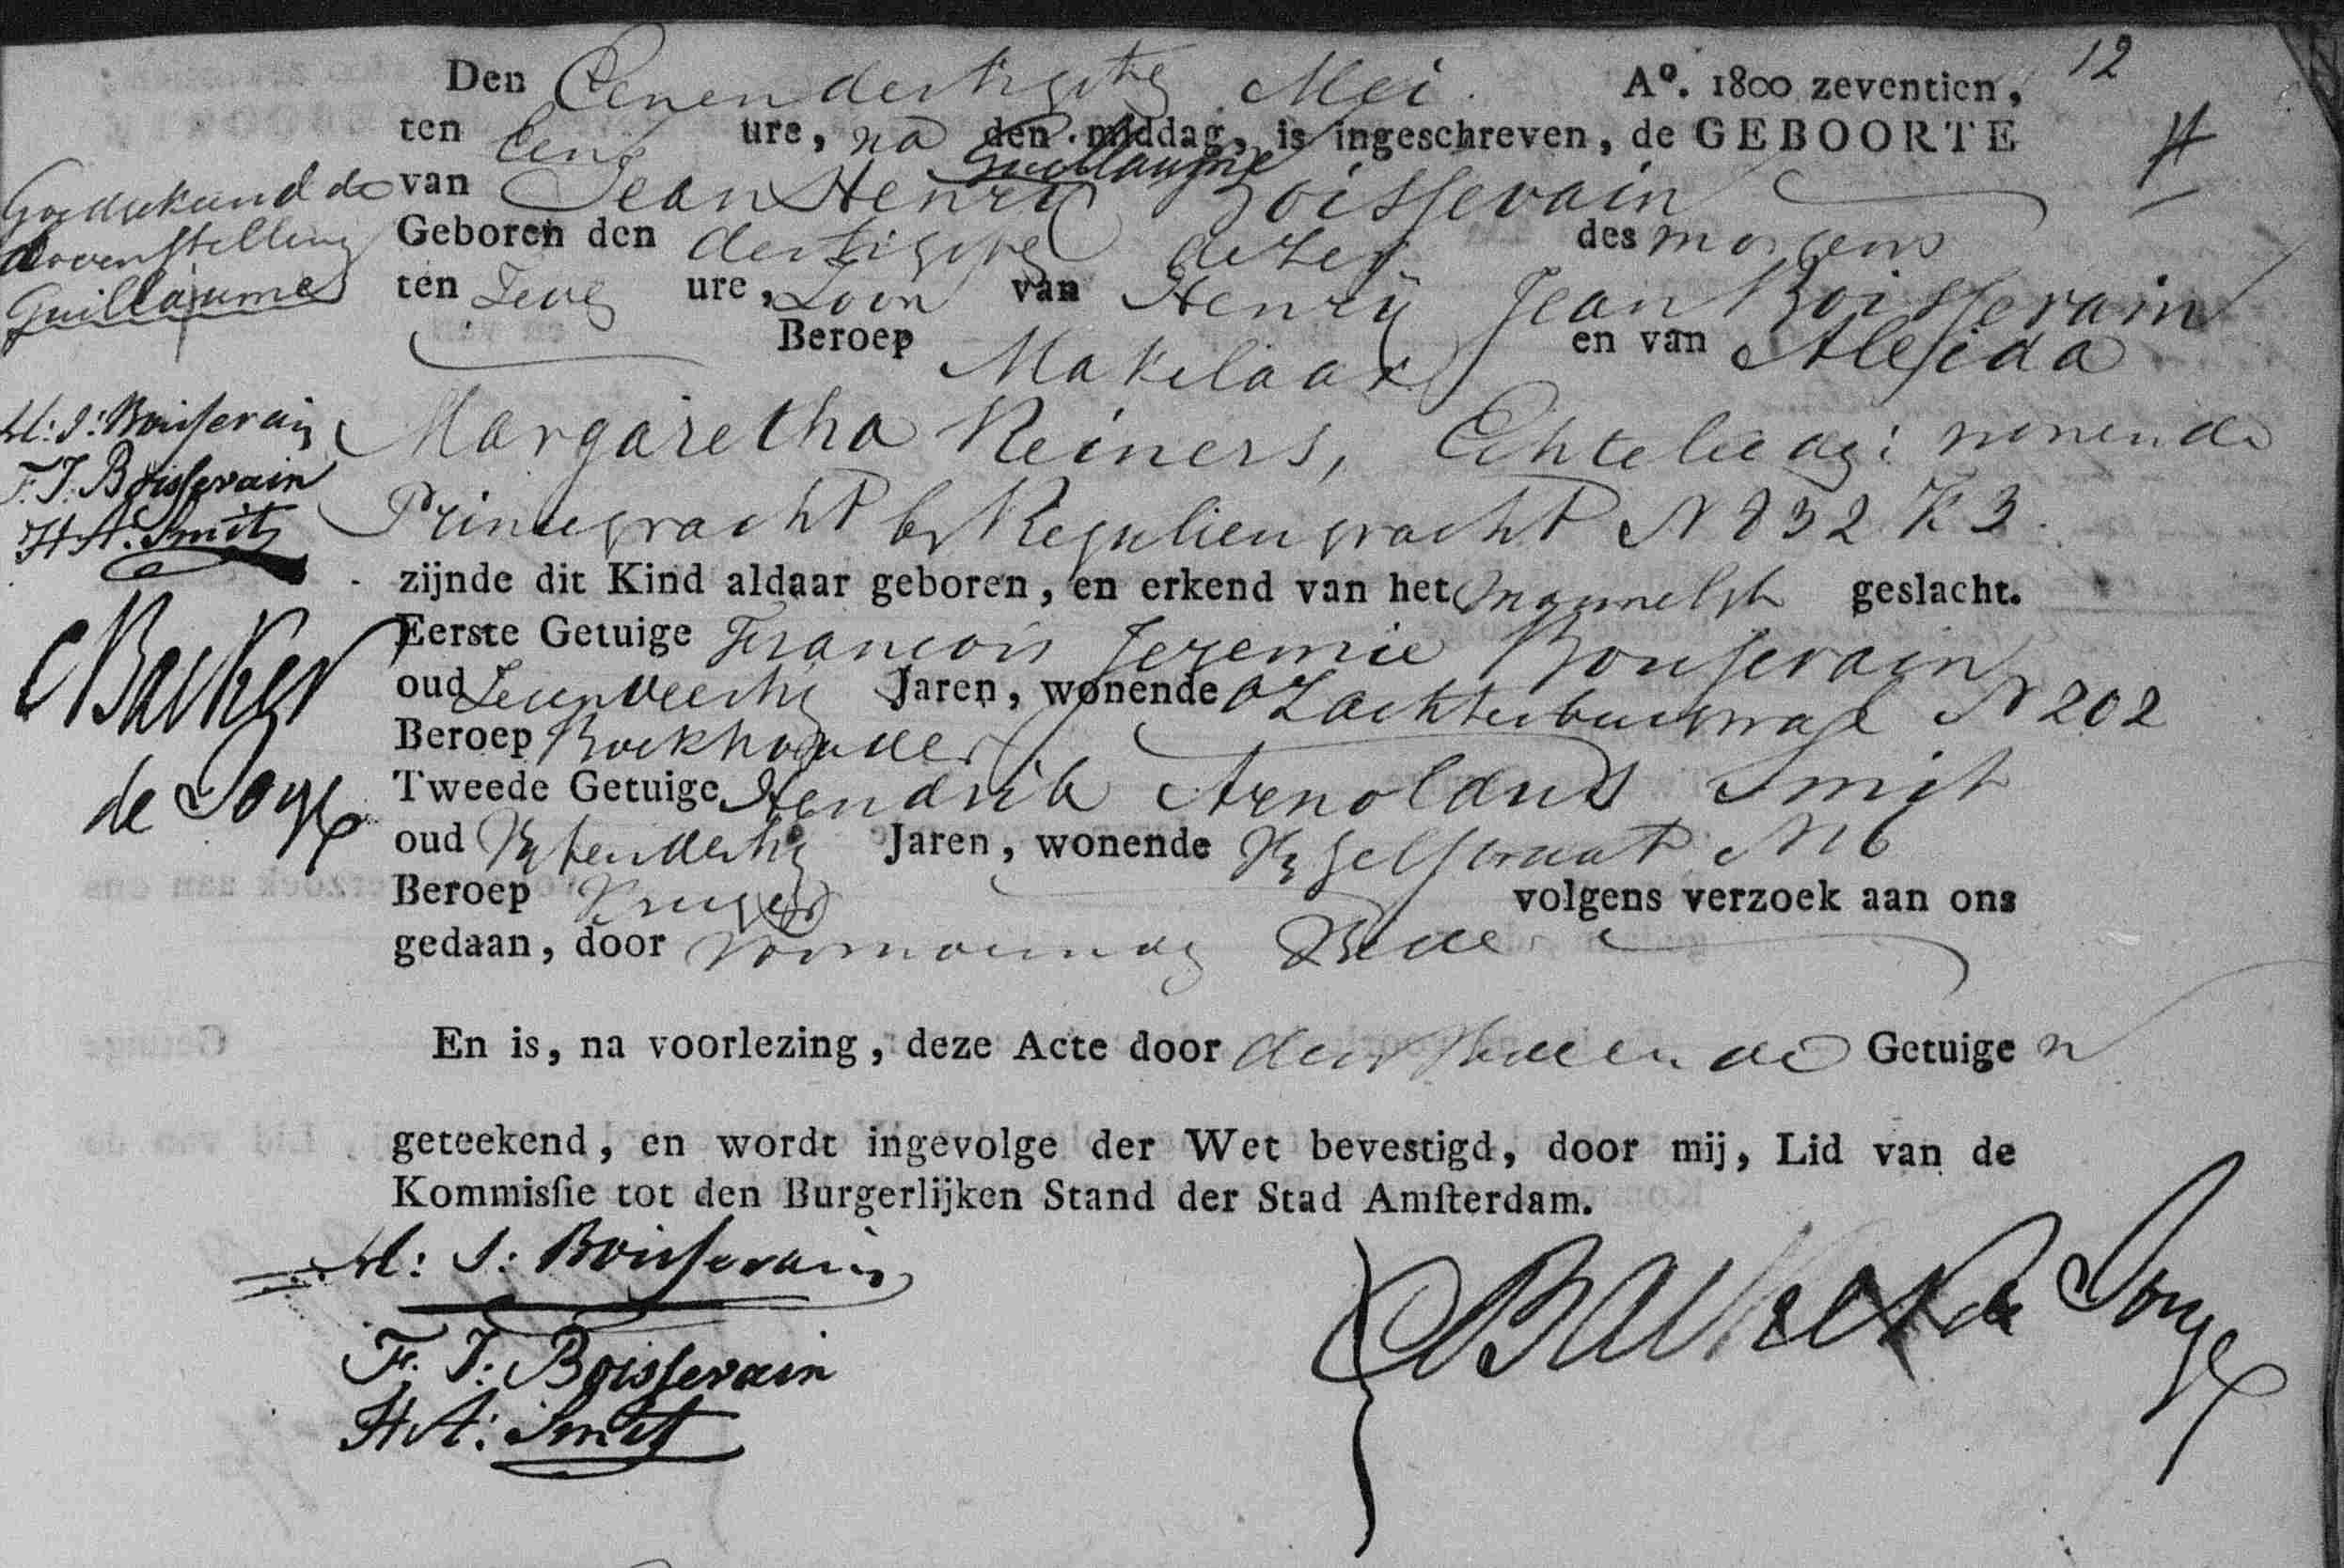 12
Den Eenendertigste Mei A⁰. 1800 zeventien,
ten Een ure, na den middag, is ingeschreven, de GEBOORTE
Guillaume
van Jean Henry Boissevain
Geboren den dertigste dezer des morgens
ten Zeve ure, Zoon van Henry Jean Boissevain
Beroep Makelaar en van Alesida
Margaretha Reiners, Echtelieden wonende
Prinsegracht by Reguliersgracht N 832 K 3.
zijnde dit Kind aldaar geboren, en erkend van het Mannelyk geslacht.
Eerste Getuige Francois Jeremie Boissevain
oud Jaren, wonende Achterburgwal N 202
Beroep Boekhouder
Tweede Getuige Hendrik Arnoldus Smit
oud Vyfendertig Jaren, wonende Vyzelstraat N 6
Beroep volgens verzoek aan ons
gedaan, door voornoemden Vader
En is, na voorlezing, deze Acte door den Vader en de Getuige n
geteekend, en wordt ingevolge der Wet bevestigd, door mij, Lid van de
Kommissie tot den Burgerlijken Stand der Stad Amsterdam.
H: J: Boissevain
F. J. Boissevain
H A: Smit
Backer de Jonge
Goedgekeurd de
bovenstelling
Guillaume
H: J: Boissevain
F. J. Boissevain
H A. Smit
Backer
de Jonge